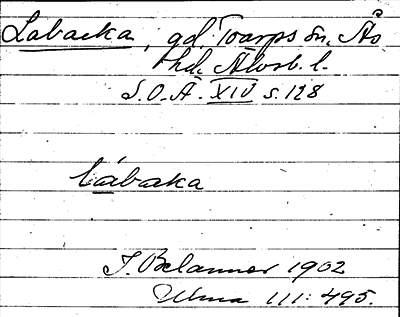 Labacka, gd, Toarps sn, Ås
hd, Älvsb. l.
S.O.Ä. XIV s. 128
lábaka
J. Belanner 1902
Ulma 111: 495.